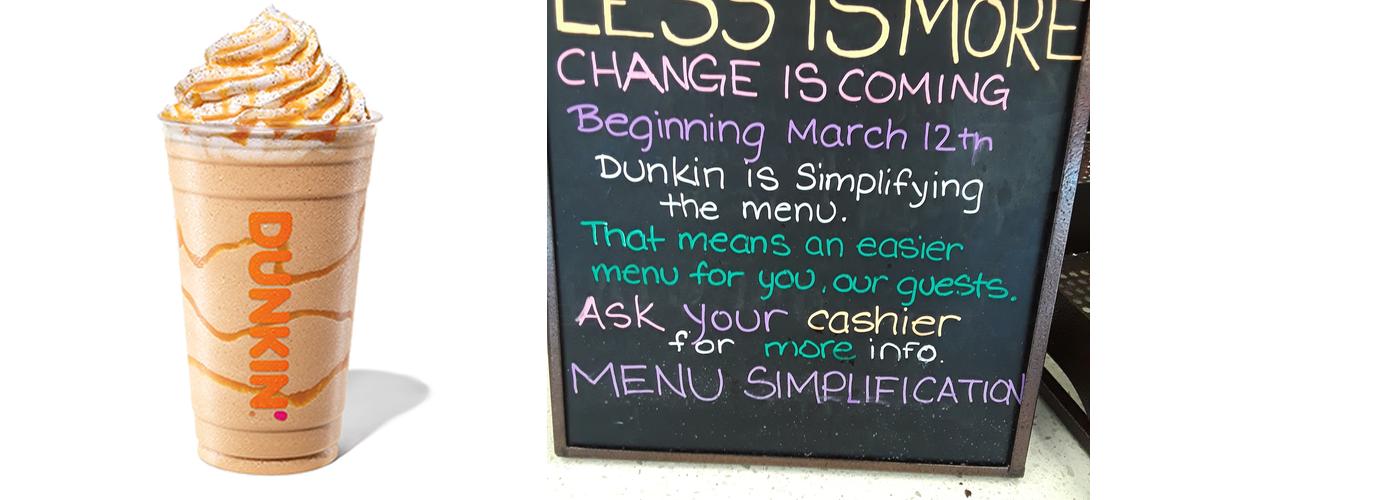 DUNKIN'
LESS IS MORE
CHANGE IS COMING
Beginning March 12th
Dunkin is Simplifying
the menu.
That means an easier
menu for you, our guests.
Ask your cashier
for more info.
MENU SIMPLIFICATION